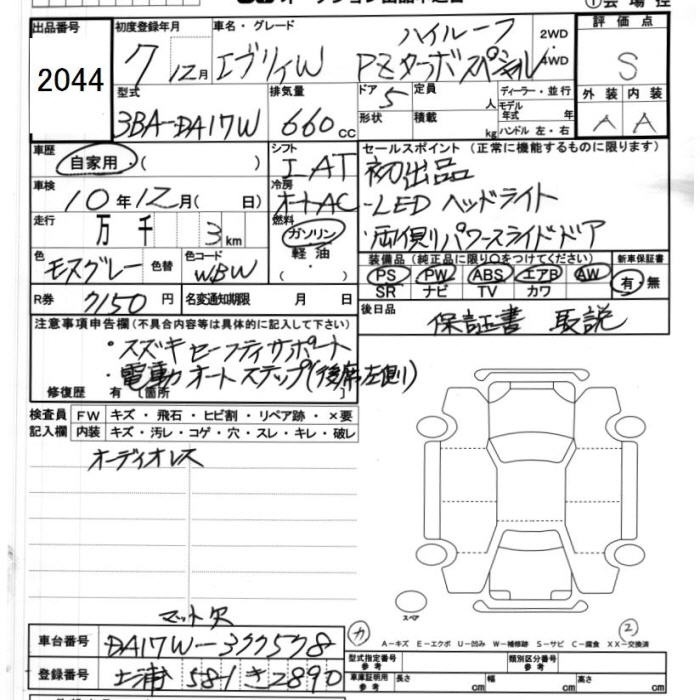 出品番号 初度登録年月 車名・グレード ハイルーフ 2WD 評価点
2044 7 12月 エブリイW PZターボスペシャル 4WD S
型式 排気量 ドア 定員 ディーラー・並行 外装 内装
3BA-DA17W 660cc 5 人 モデル年式 年 A A
形状 積載 kg ハンドル 左・右
車歴 シフト セールスポイント(正常に機能するものに限ります。)
自家用・( ) IAT 初出品
車検 冷房 ・LEDヘッドライト
10年12月( 日) オートAC
走行 万 千 3km 燃料 ガソリン ・両側パワースライドドア
軽油・( )
色 モスグレー 色替 色コード WBW 装備品(純正品に限り○をつけてください) 新車保証書
PS PW ABS エアB AW 有・無
SR ナビ TV カワ
R券 7150円 名変通知期限 月 日 後日品
保証書 取説
注意事項申告欄(不具合内容等は具体的に記入して下さい)
・スズキセーフティサポート
・電動オートステップ(後席左側)
修復歴 有〔箇所 〕
検査員 FW キズ・飛石・ヒビ割・リペア跡・×要
記入欄 内装 キズ・汚レ・コゲ・穴・スレ・キレ・破レ
オーディオレス
スペア
マット欠
カ 2
A-キズ E-エクボ U-凹み W-補修跡 S-サビ C-腐食 XX-交換済
車台番号 DA17W-377578 型式指定番号 参考 類別区分番号 参考
登録番号 土浦 581 き 2890 車庫証明用 参考 長さ cm 幅 cm 高さ cm